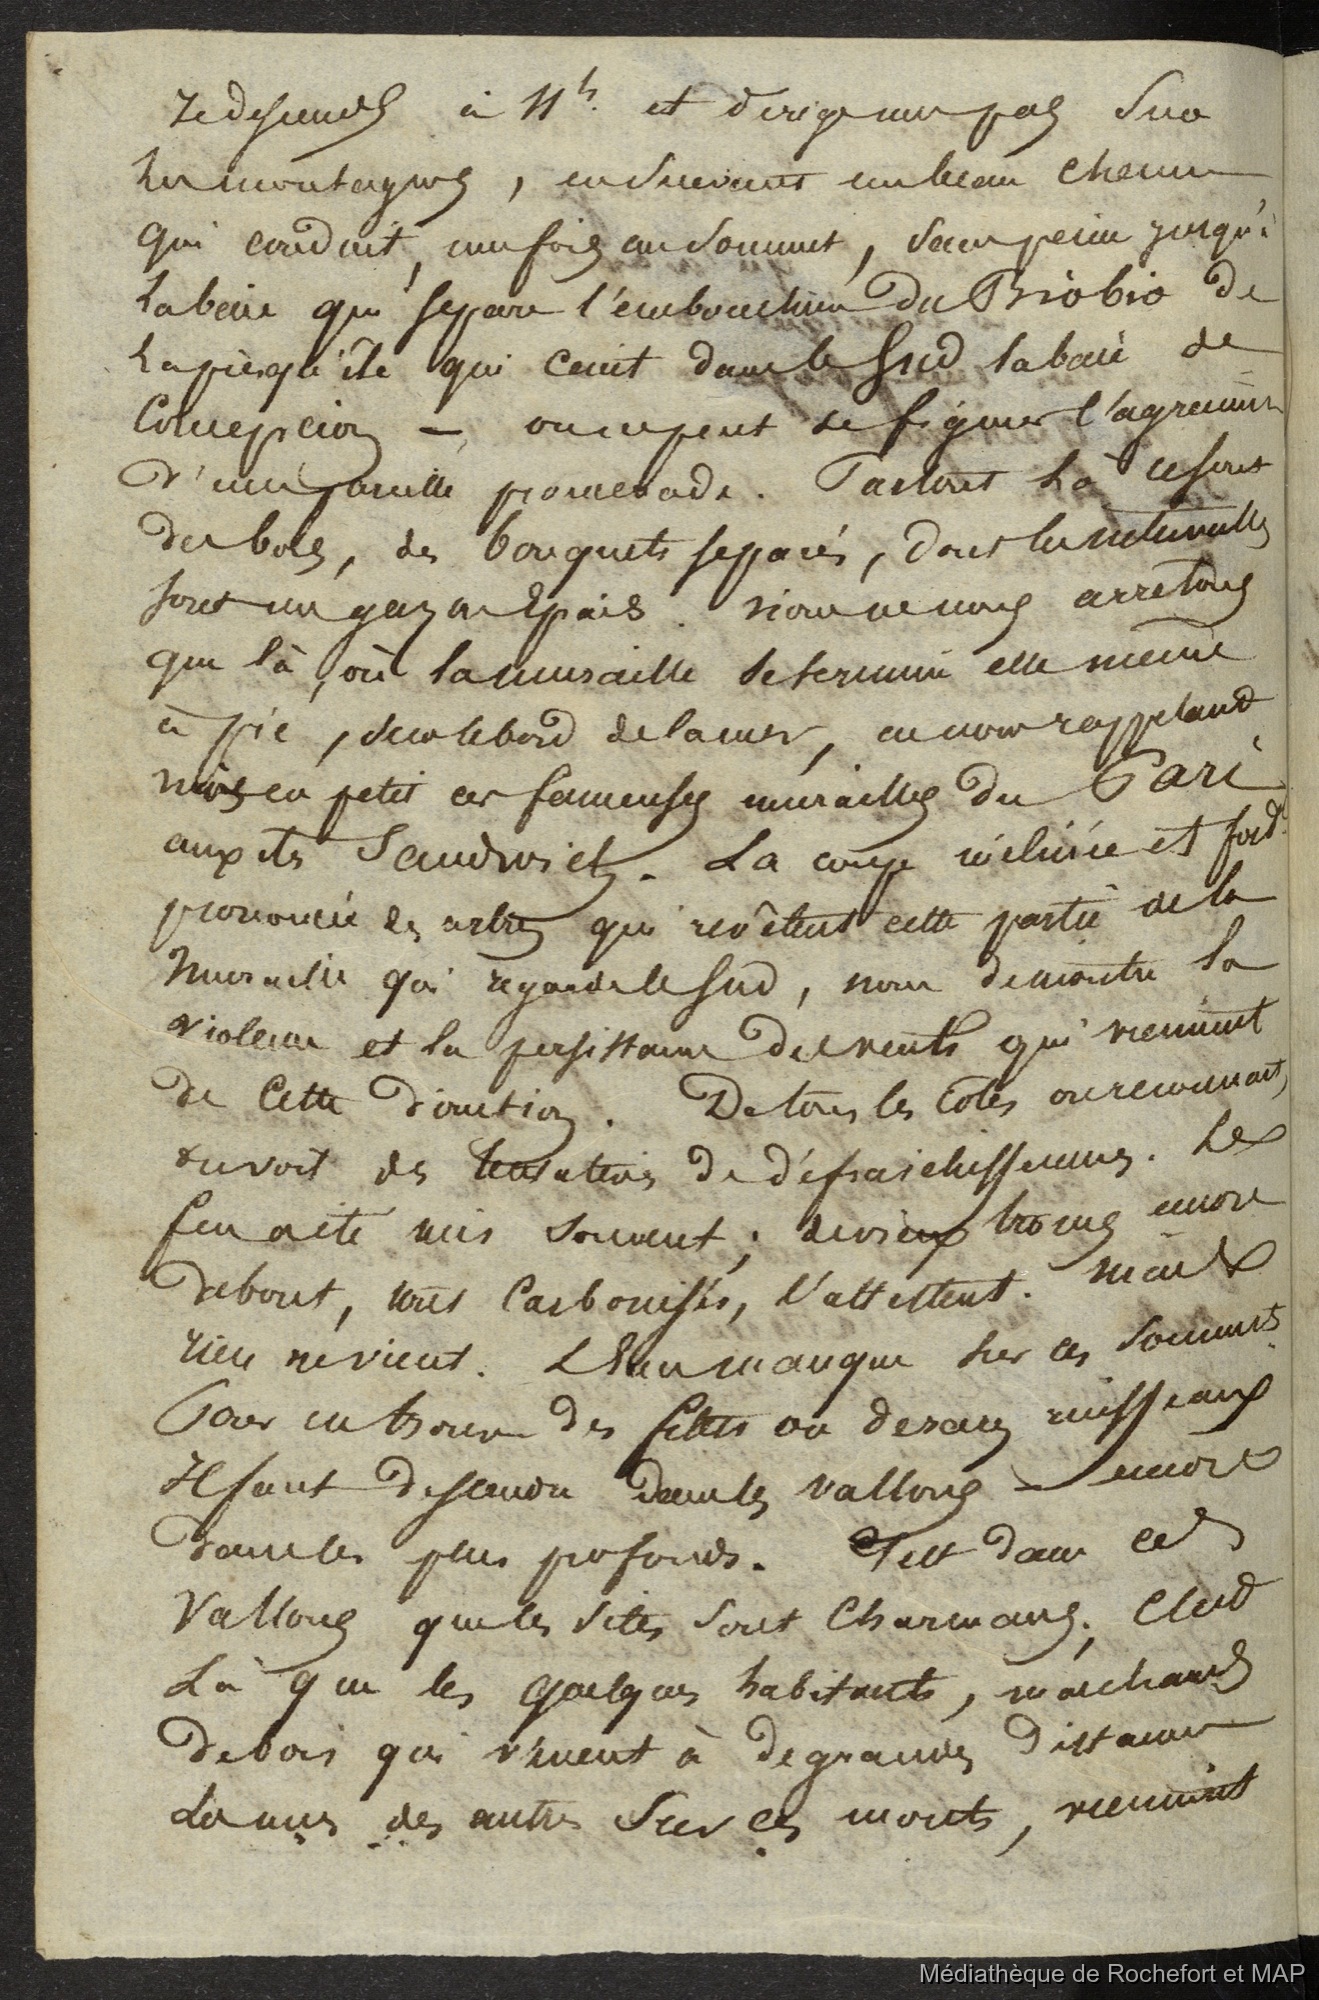 Je descends à 11h. et dirige mes pas sur
les montagnes, en suivant un beau chemin
qui conduit, une fois au sommet, sans peine jusqu'à
la baie qui separe l'embouchure du Biobio de
la presqu'ile qui ceint dans le Sud la baie de
Concepcion — on ne peut se figurer l'agrement
d'une pareille promenade. Partout là ce sont
des bois, des bouquets separés, dont les intervalles
sont un gazon Epais. nous ne nous arretons
que là, où la muraille se termine elle meme
à pic, sur le bord de la mer, en nous rappelant
mais en petit ces fameuses murailles du Pari
aux iles Sandwich. La coupe inclinée et fort
prononcée des arbres qui revêtent cette partie de la
muraille qui regarde le Sud, nous demontre la
violence et la persistance des vents qui viennent
de Cette direction. De tous les côtés on reconnait,
on voit des tentatives de défraichissemens. Le
feu a été mis souvent; de vieux troncs encore
debout, tous Carbonisés, l'attestent. mais
rien ne vient. L'Eau manque sur ces sommets
Pour en trouver des filets ou de rares ruisseaux
Il faut descendre dans les vallons — encore
dans les plus profonds. C'est dans ces
Vallons que les sites sont Charmans; C'est
Là que les quelques habitants, marchands
de bois qui vivent à de grandes distances
Les uns des autres Sur ces monts, viennent
Médiathèque de Rochefort et MAP